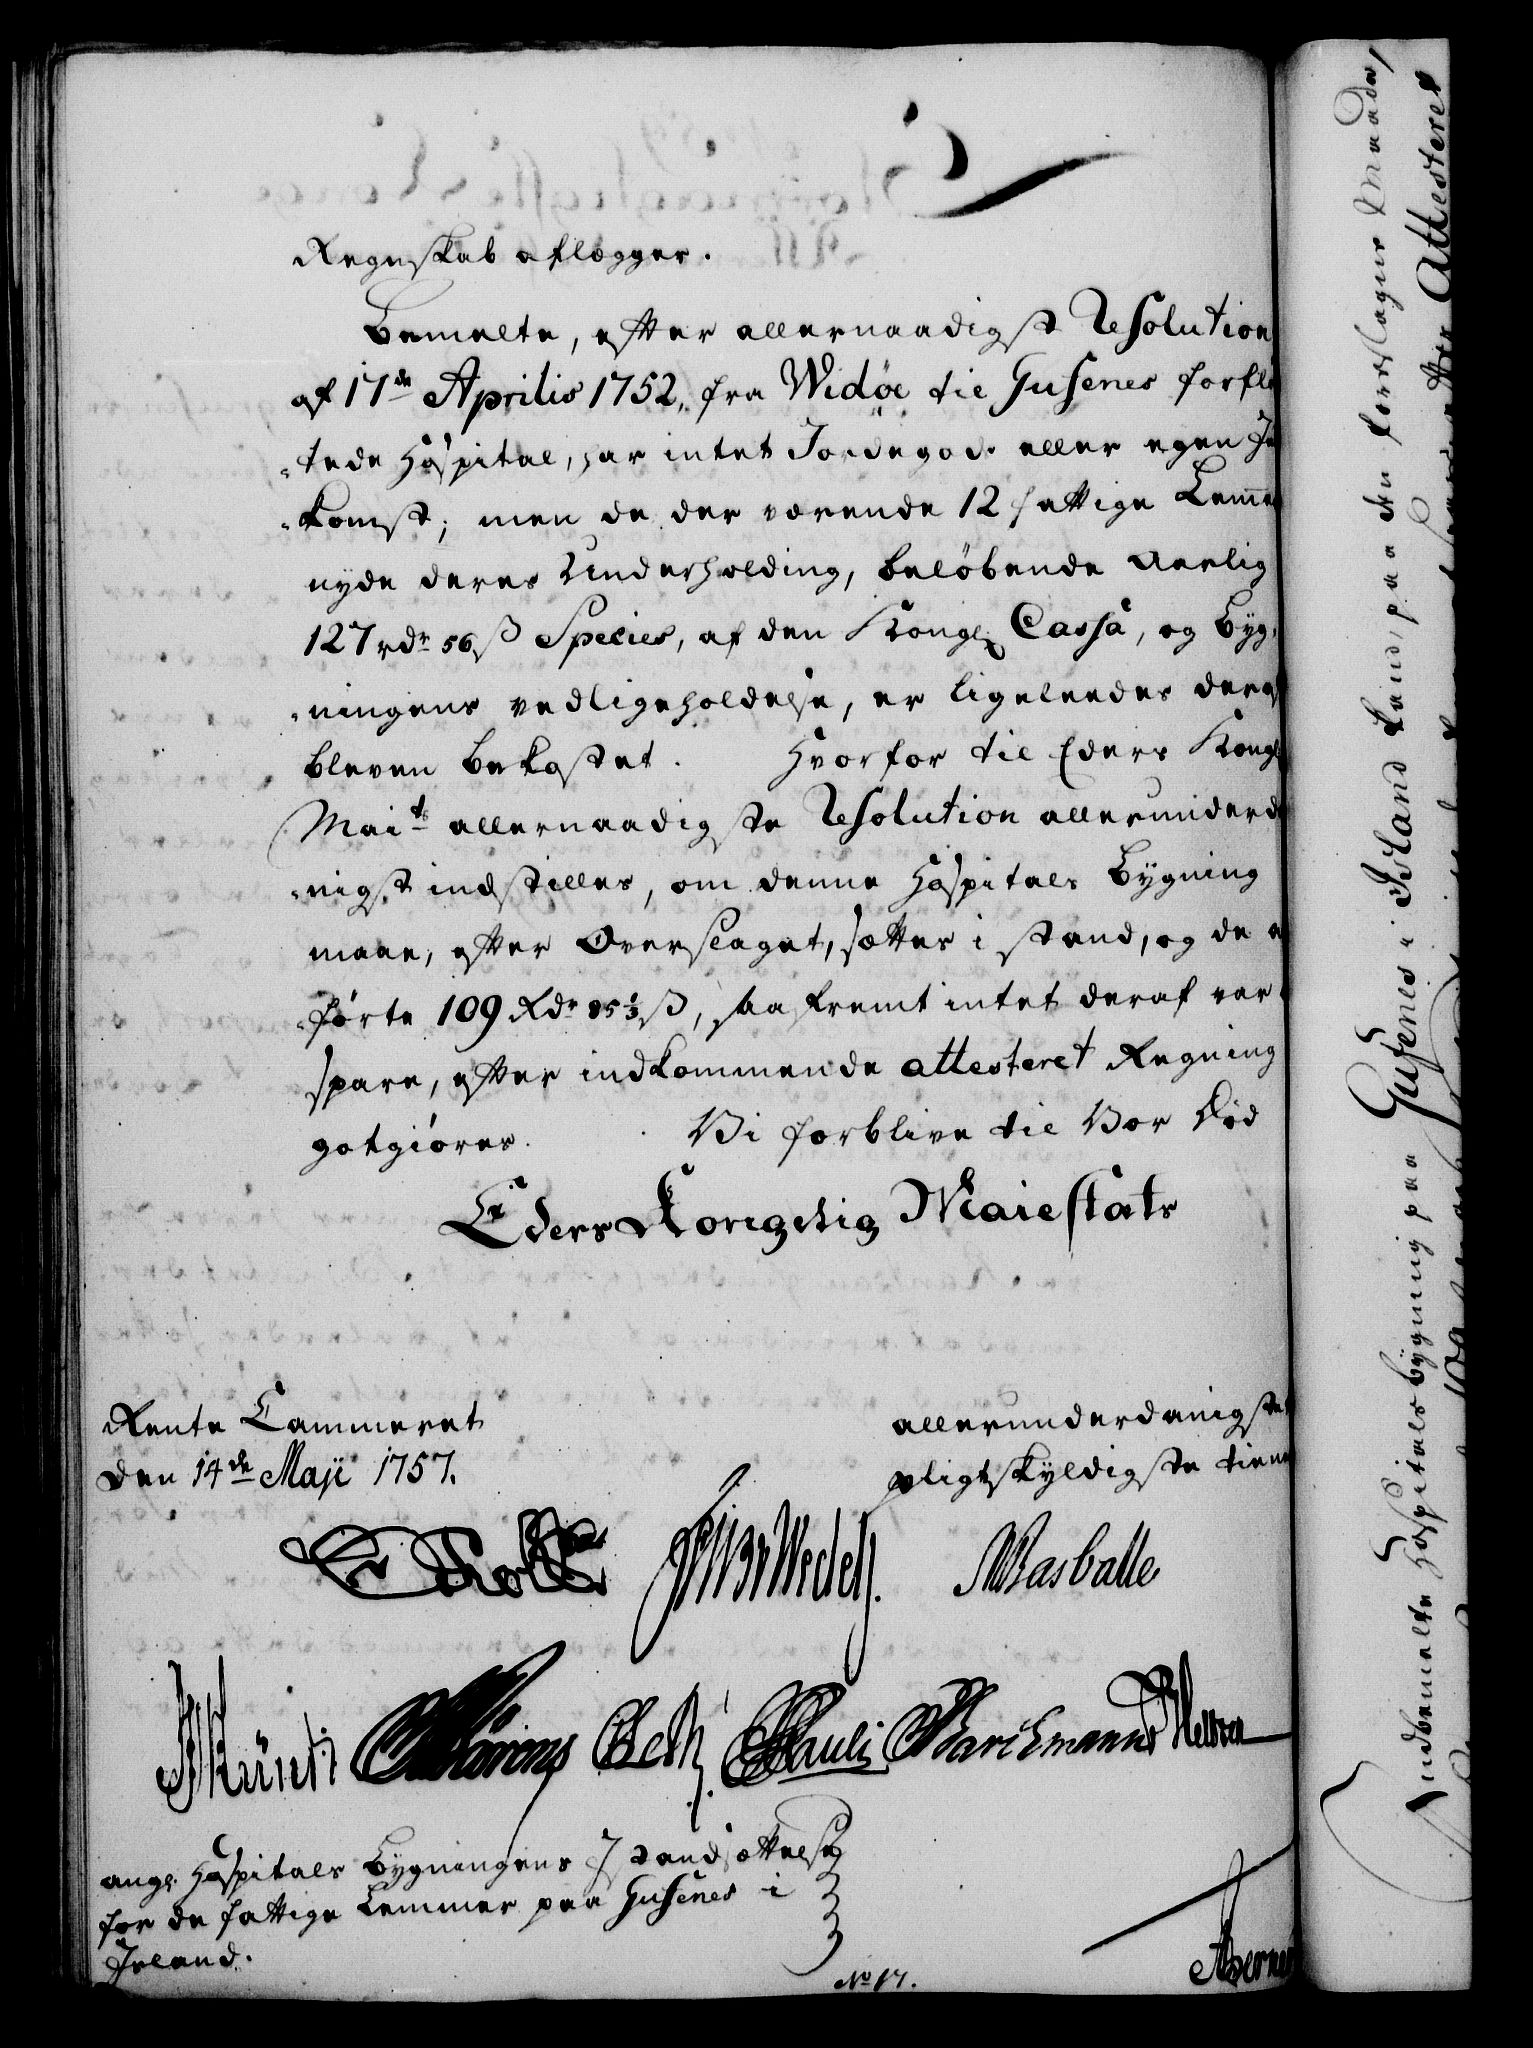 Regnskab aflægger.
Bemelte, efter allernaadigst Resolution
af 17de Aprilis 1752, fra Widøe til Gufenes forfløt-
-tede Hospital, har intet Jordegods eller egen Ind-
-komst; men de der værende 12 fattige Lemmer
nyde deres Underholdning, beløbende aarlig
127 rdr 56 ß Species, af den Kongl. Cassa, og Byg-
-ningens vedligeholdelse, er ligeleedes deraf
bleven bekostet. Hvorfor til Eders Kongl.
Maits allernaadigste Resolution allerunderda-
-nigst indstilles, om denne Hospitals Bygning
maae, efter Overslaget, sættes i stand, og de
-førte 109 Rdr 85 1/3 ß, saafremt intet deraf kand
spare, efter indkommende attesteret Regning
gotgiøres. Vi forblive til Vor Død
Eders Kongelig Maiestæts
Rente Cammeret
den 14de Maji 1757.
allerunderdanigste
pligtskyldigste tiene
Wedell. Rasballe
Pauli Barchmann
ang. Hospitals Bygningens Istandsættelse
for de fattige Lemmer paa Gufenes i
Island.
No 17.
Indbemelte Hospitals Bygning paa Gufenes i Island kand, paa den foreslagne Maade,
attesteret